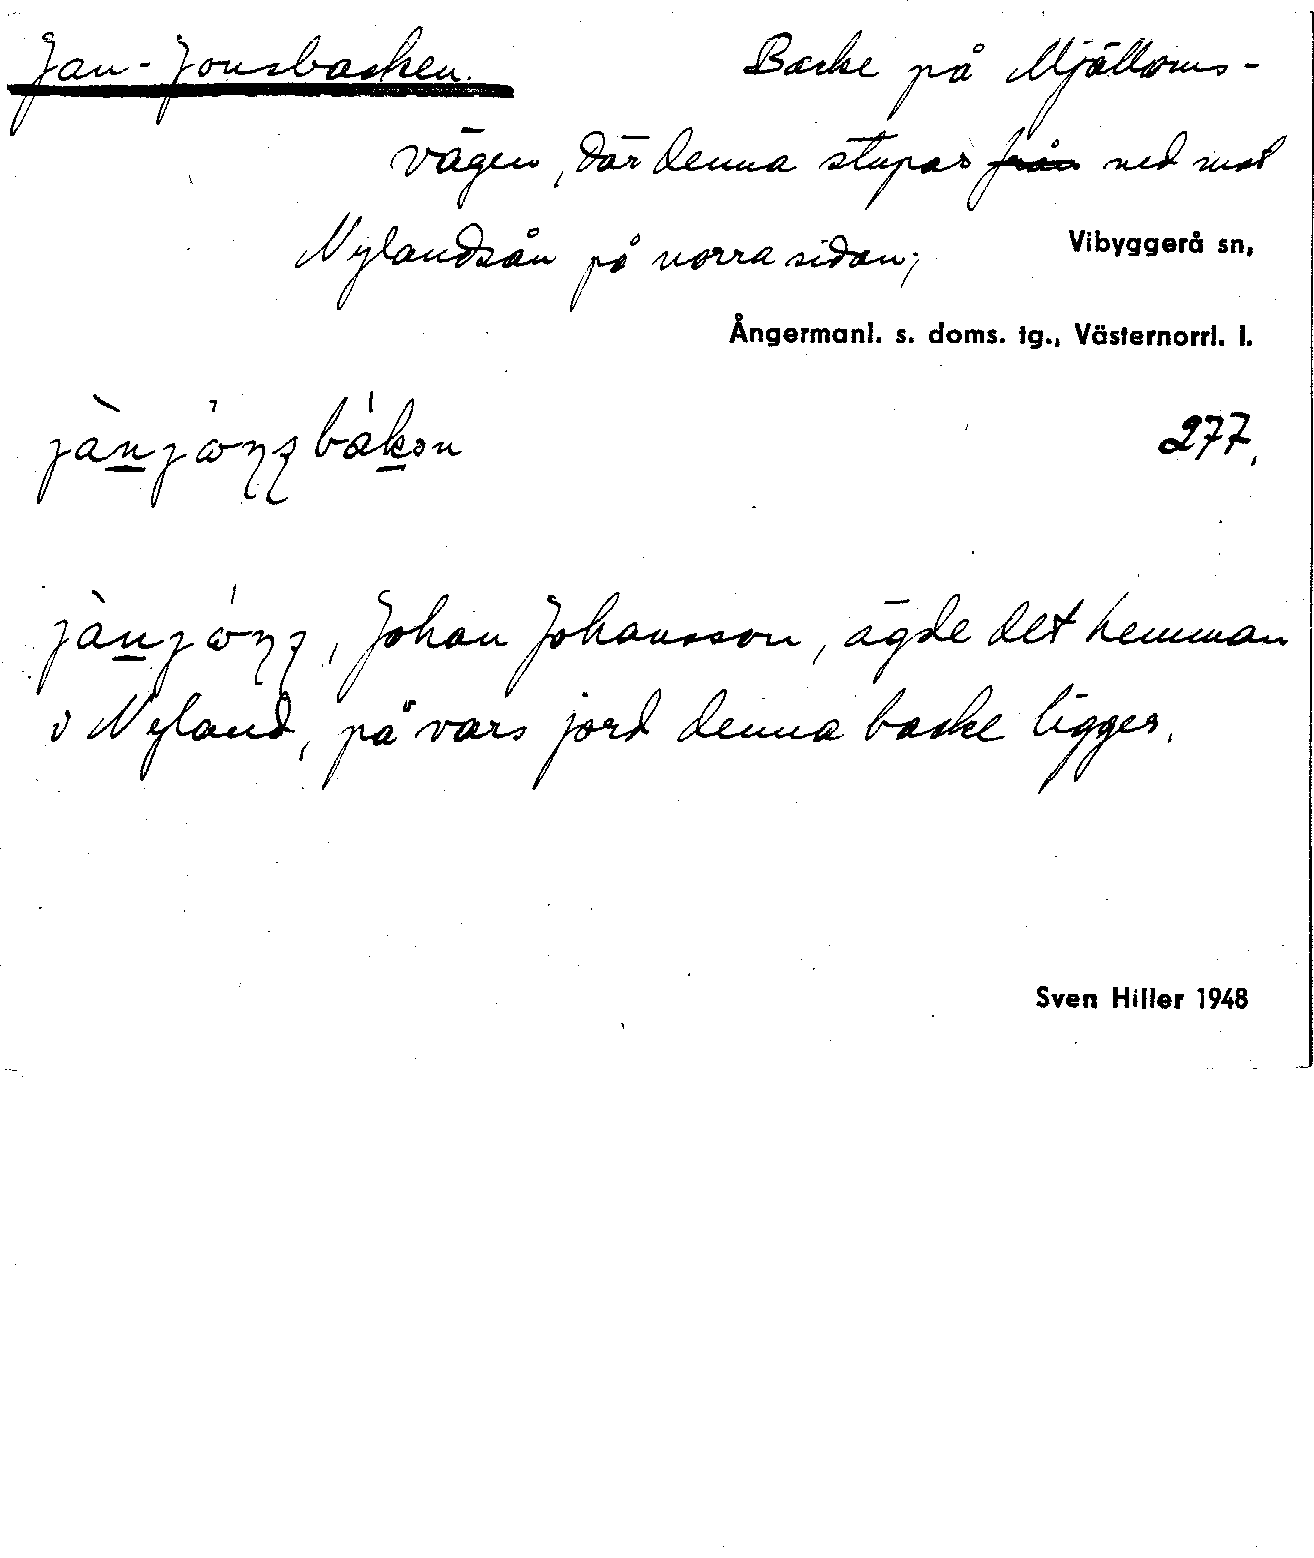 Jan-Jonsbacken. Backe på Mjälloms-
vägen, där denna stupar från ned mot
Nylandsån på norra sidan; Vibyggerå sn,
Ångermanl. s. doms. tg., Västernorrl. l.
277.
Johan Johansson, ägde det hemman
i Nyland, på vars jord denna backe ligger.
Sven Hiller 1948